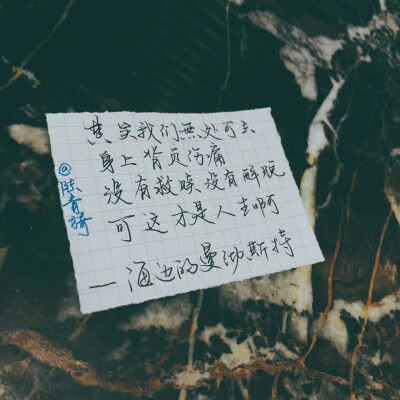 其实我们無处可去
身上背负伤痛
没有救赎没有解脱
可这才是人生啊
—海边的曼彻斯特
@陈青